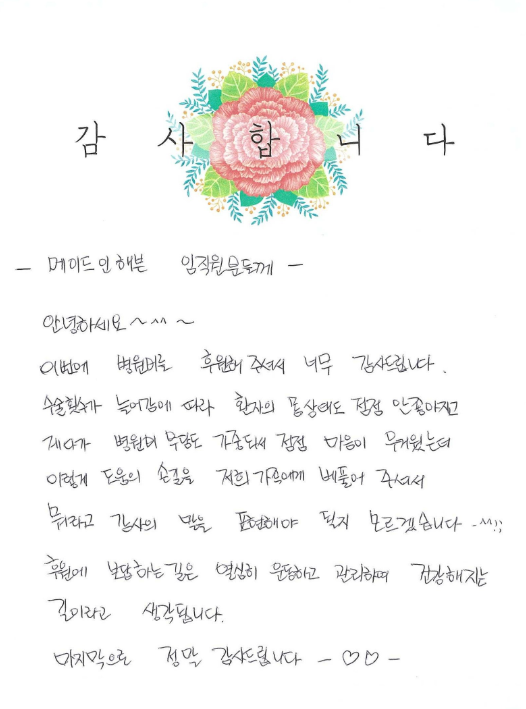 감 사 합 니 다
- 메이드인헤븐 임직원분들께 -
안녕하세요~^^~
이번에 병원비를 후원해 주셔서 너무 감사드립니다.
수술횟수가 늘어감에 따라 환자의 몸상태도 점점 안좋아지고
게다가 병원비 부담도 가중되서 점점 마음이 무거웠는데
이렇게 도움의 손길을 저희 가족에게 베풀어 주셔서
뭐라고 감사의 말을 표현해야 될지 모르겠습니다-^^;;
후원에 보답하는 길은 열심히 운동하고 관리하며 건강해지는
길이라고 생각됩니다.
마지막으로 정말 감사드립니다 - ♡♡ -